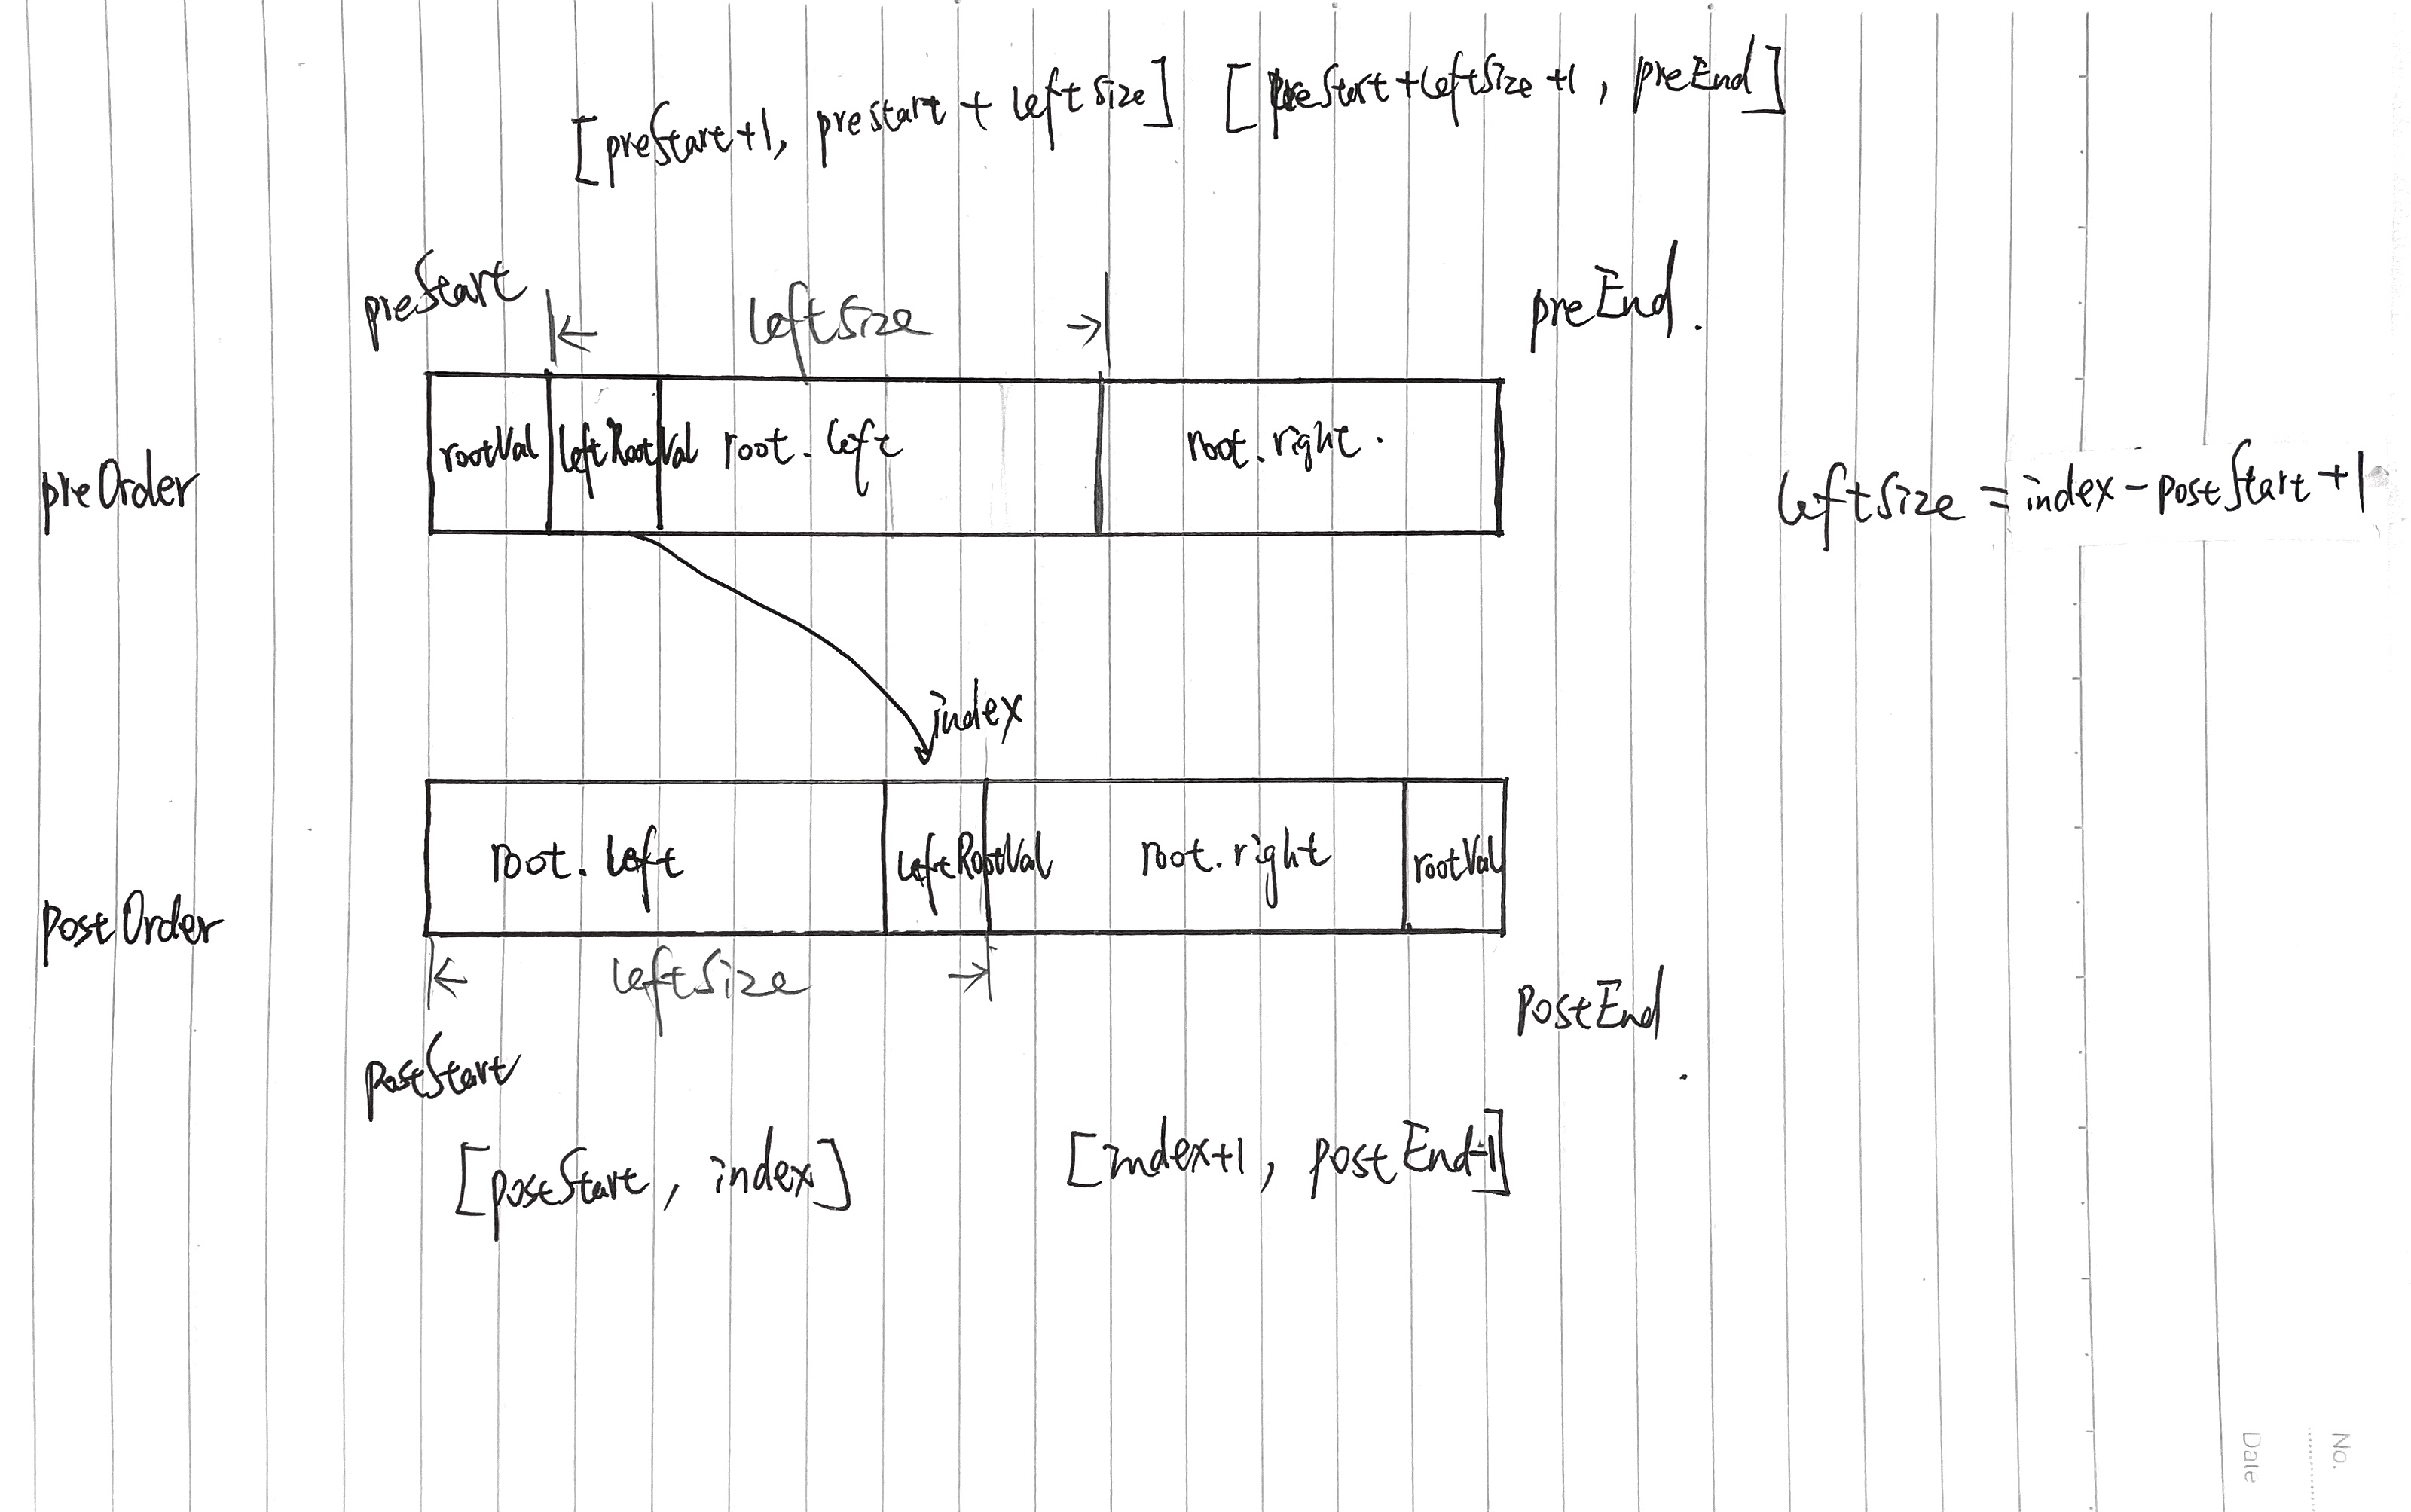 [preStart+1, prestart + leftSize] [preStart+leftSize+1, preEnd]
preStart
leftSize
preEnd.
preOrder
rootVal leftRootVal root.left root.right.
leftSize = index-postStart+1
index
root.left leftRootVal root.right rootVal
postOrder
leftSize
PostEnd
postStart
[postStart, index] [index+1, postEnd-1]
No.
Date